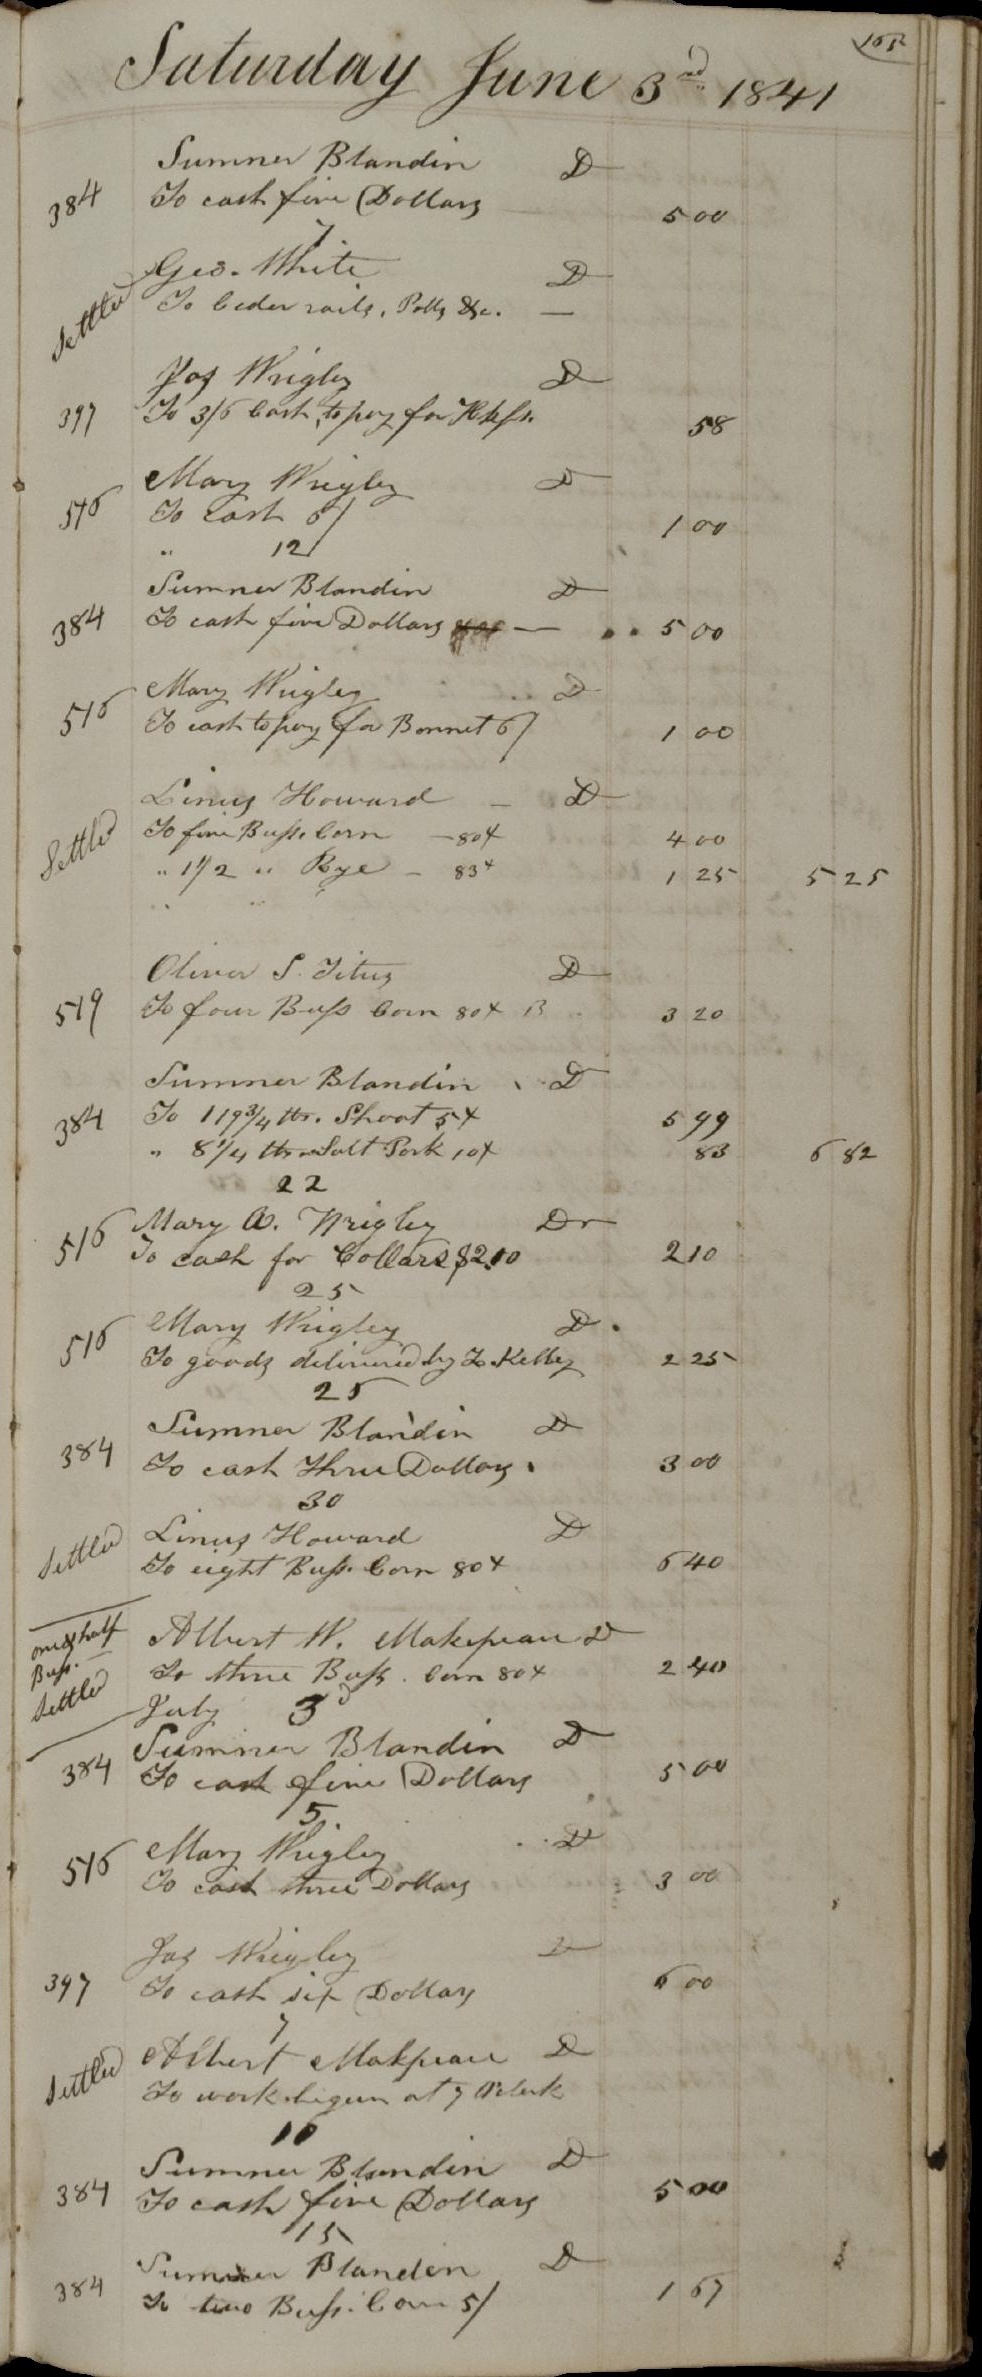 165
Saturday June 3rd 1841
Sumner Blandin D
384 To cash five Dollars 5 00
7
Geo. White D
Settled To Ceder rails, Polls &c. —
Jas Wrigley D
397 To 3/6 Cash to pay for 58
Mary Wrigley D
516 To Cash 6/ 1 00
" 12
Sumner Blandin D
384 To cash five Dollars — 5 00
Mary Wrigley D
516 To cash to pay for Bonnet 6/ 1 00
Linus Howard — D
Settled To five Bush. Corn — 80¢ 4 00
" 1 1/2 " Rye — 83¢ 1 25 5 25
Oliver S. Titus D
519 To four Bush Corn 80¢ 3 20
Sumner Blandin D
384 To 119 3/4 lbs. Shoat 5¢ 5 99
" 8 1/4 lbs Salt Pork 10¢ 83 6 82
22
Mary A. Wrigley Dr
516 To cash for Collars $2.10 2 10
25
Mary Wrigley D
516 To goods delivered by Z. Kelley 2 25
25
Sumner Blandin D
384 To cash Three Dollars 3 00
30
Linus Howard D
Settled To eight Bush. Corn 80¢ 6 40
one & half
Bush.
Albert W. Makepeace D
Settled To three Bush. Corn 80¢ 2 40
July 3d
Sumner Blandin D
384 To cash five Dollars 5 00
5
Mary Wrigley D
516 To cash three Dollars 3 00
Jas Wrigley D
397 To cash six Dollars 6 00
7
Albert Makpeace D
Settled To work begun at 7 Oclock
10
Sumner Blandin D
384 To cash five Dollars 5 00
15
Sumner Blanden D
384 To two Bush. Corn 5/ 1 67